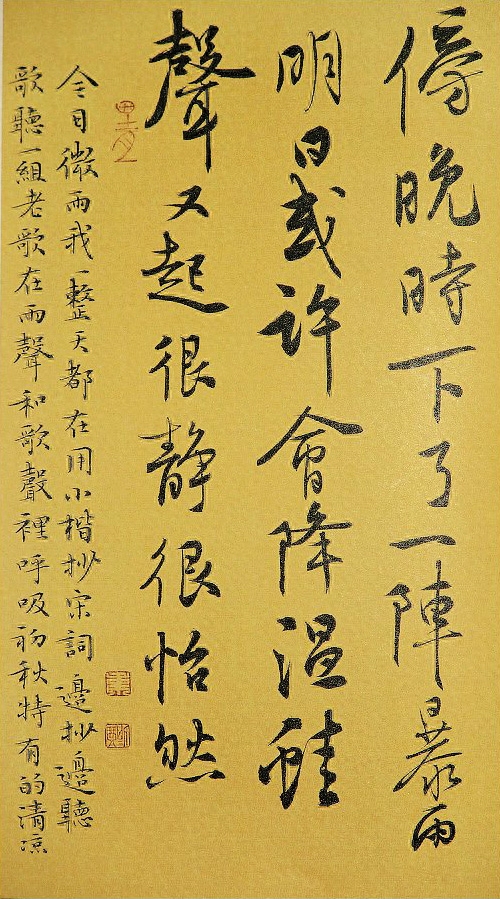 傍晚時下了一陣暴雨
明日或許會降温蛙
聲又起很静很怡然
今日微雨我一整天都在用小楷抄宋詞邊抄邊聽
歌聽一組老歌在雨聲和歌聲裡呼吸初秋特有的清凉